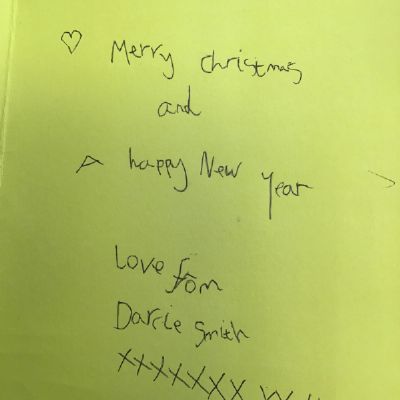 ♡ Merry christmas
and
A happy New year
Love from
Darcie Smith
xxxxxxx